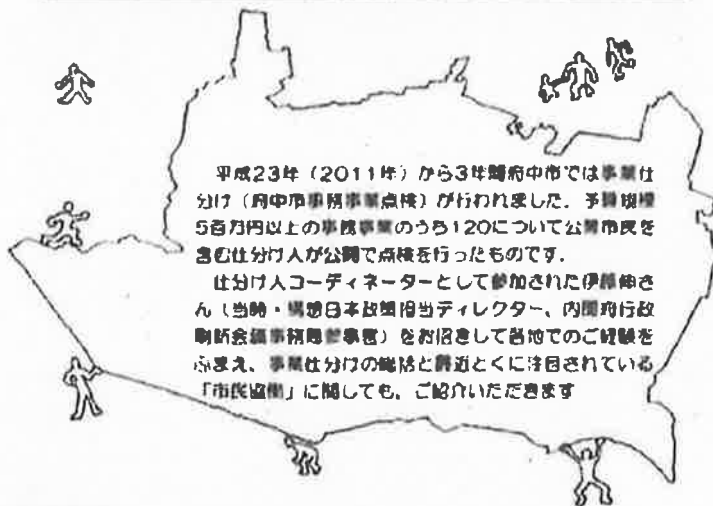 平成23年（2011年）から3年間府中市では事業仕
分け（府中市事務事業点検）が行われました。予算規模
5百万円以上の事務事業のうち120について公募市民を
含む仕分け人が公開で点検を行ったものです。
仕分け人コーディネーターとして参加された伊藤伸さ
ん（当時・構想日本政策担当ディレクター、内閣府行政
刷新会議事務局参事官）をお招きして各地でのご経験を
ふまえ、事業仕分けの総括と最近とくに注目されている
「市民協働」に関しても、ご紹介いただきます